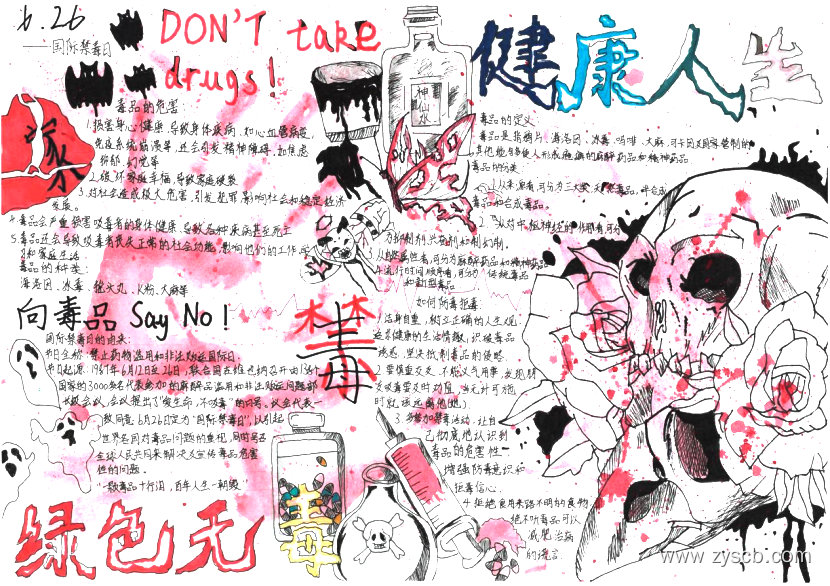 6.26
——国际禁毒日
DON'T take
drugs!
健康人生
神仙水
家
毒品的危害:
1.损害身心健康,导致身体疾病,如心血管病变,
免疫系统崩溃等,还会引发精神障碍,如焦虑
抑郁、幻觉等
2.破坏家庭幸福,导致家庭破裂
3.对社会造成极大危害,引发犯罪,影响社会和稳定经济
发展。
4.毒品会严重损害吸毒者的身体健康,导致各种疾病甚至死亡
5.毒品还会导致吸毒者丧失正常的社会功能,影响他们的工作、学
习和家庭生活
毒品的种类:
海洛因、冰毒、摇头丸、K粉、大麻等
毒品的定义:
毒品是指鸦片、海洛因、冰毒、吗啡、大麻、可卡因及国家管制的
其他能够使人形成瘾癖的麻醉药品和精神药品
毒品的分类:
从来源看,可分为三大类,天然毒品,半合成
毒品和合成毒品。
2.从对中枢神经的作用看,可分
为抑制剂,兴奋剂和致幻剂,
可分为麻醉药品和精神药品
流行时间顺序看,可分为传统毒品
和新型毒品
向毒品 Say No!
禁毒
国际禁毒日的由来:
节日全称:禁止药物滥用和非法贩运国际日.
节日起源:1987年6月12日至26日,联合国在维也纳召开由138个
国家的3000多名代表参加的麻醉品滥用和非法贩运问题部
长级会议,会议提出了"爱生命,不吸毒"的口号,议会代表一
致同意,6月26日定为"国际禁毒日",以引起
世界各国对毒品问题的重视,同时号召
全球人民共同来解决及宣传毒品危害
性的问题.
如何防毒拒毒:
1.洁身自爱,树立正确的人生观
培养健康的生活情趣,识破毒品
诱惑,坚决抵制毒品的侵蚀
2.要慎重交友,不能义气用事,发现朋
友吸毒要及时劝阻,当无计可施
时就该远离他(她)
3.多参加禁毒活动,让自
己彻底地认识到
毒品的危害性
增强防毒意识和
拒毒信心.
4.拒绝食用来路不明的食物
绝不听毒品可以
减肥治病
的谎言.
绿色无毒
www.zyscb.com